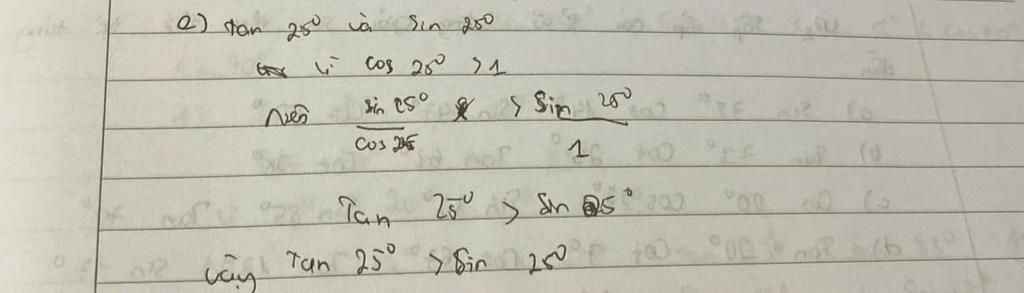 e) tan 25° và sin 25°
vì cos 25° > 1
nên sin 25° / cos 25 > sin 25° / 1
Tan 25° > Sin 25°
Vậy Tan 25° > Sin 25°